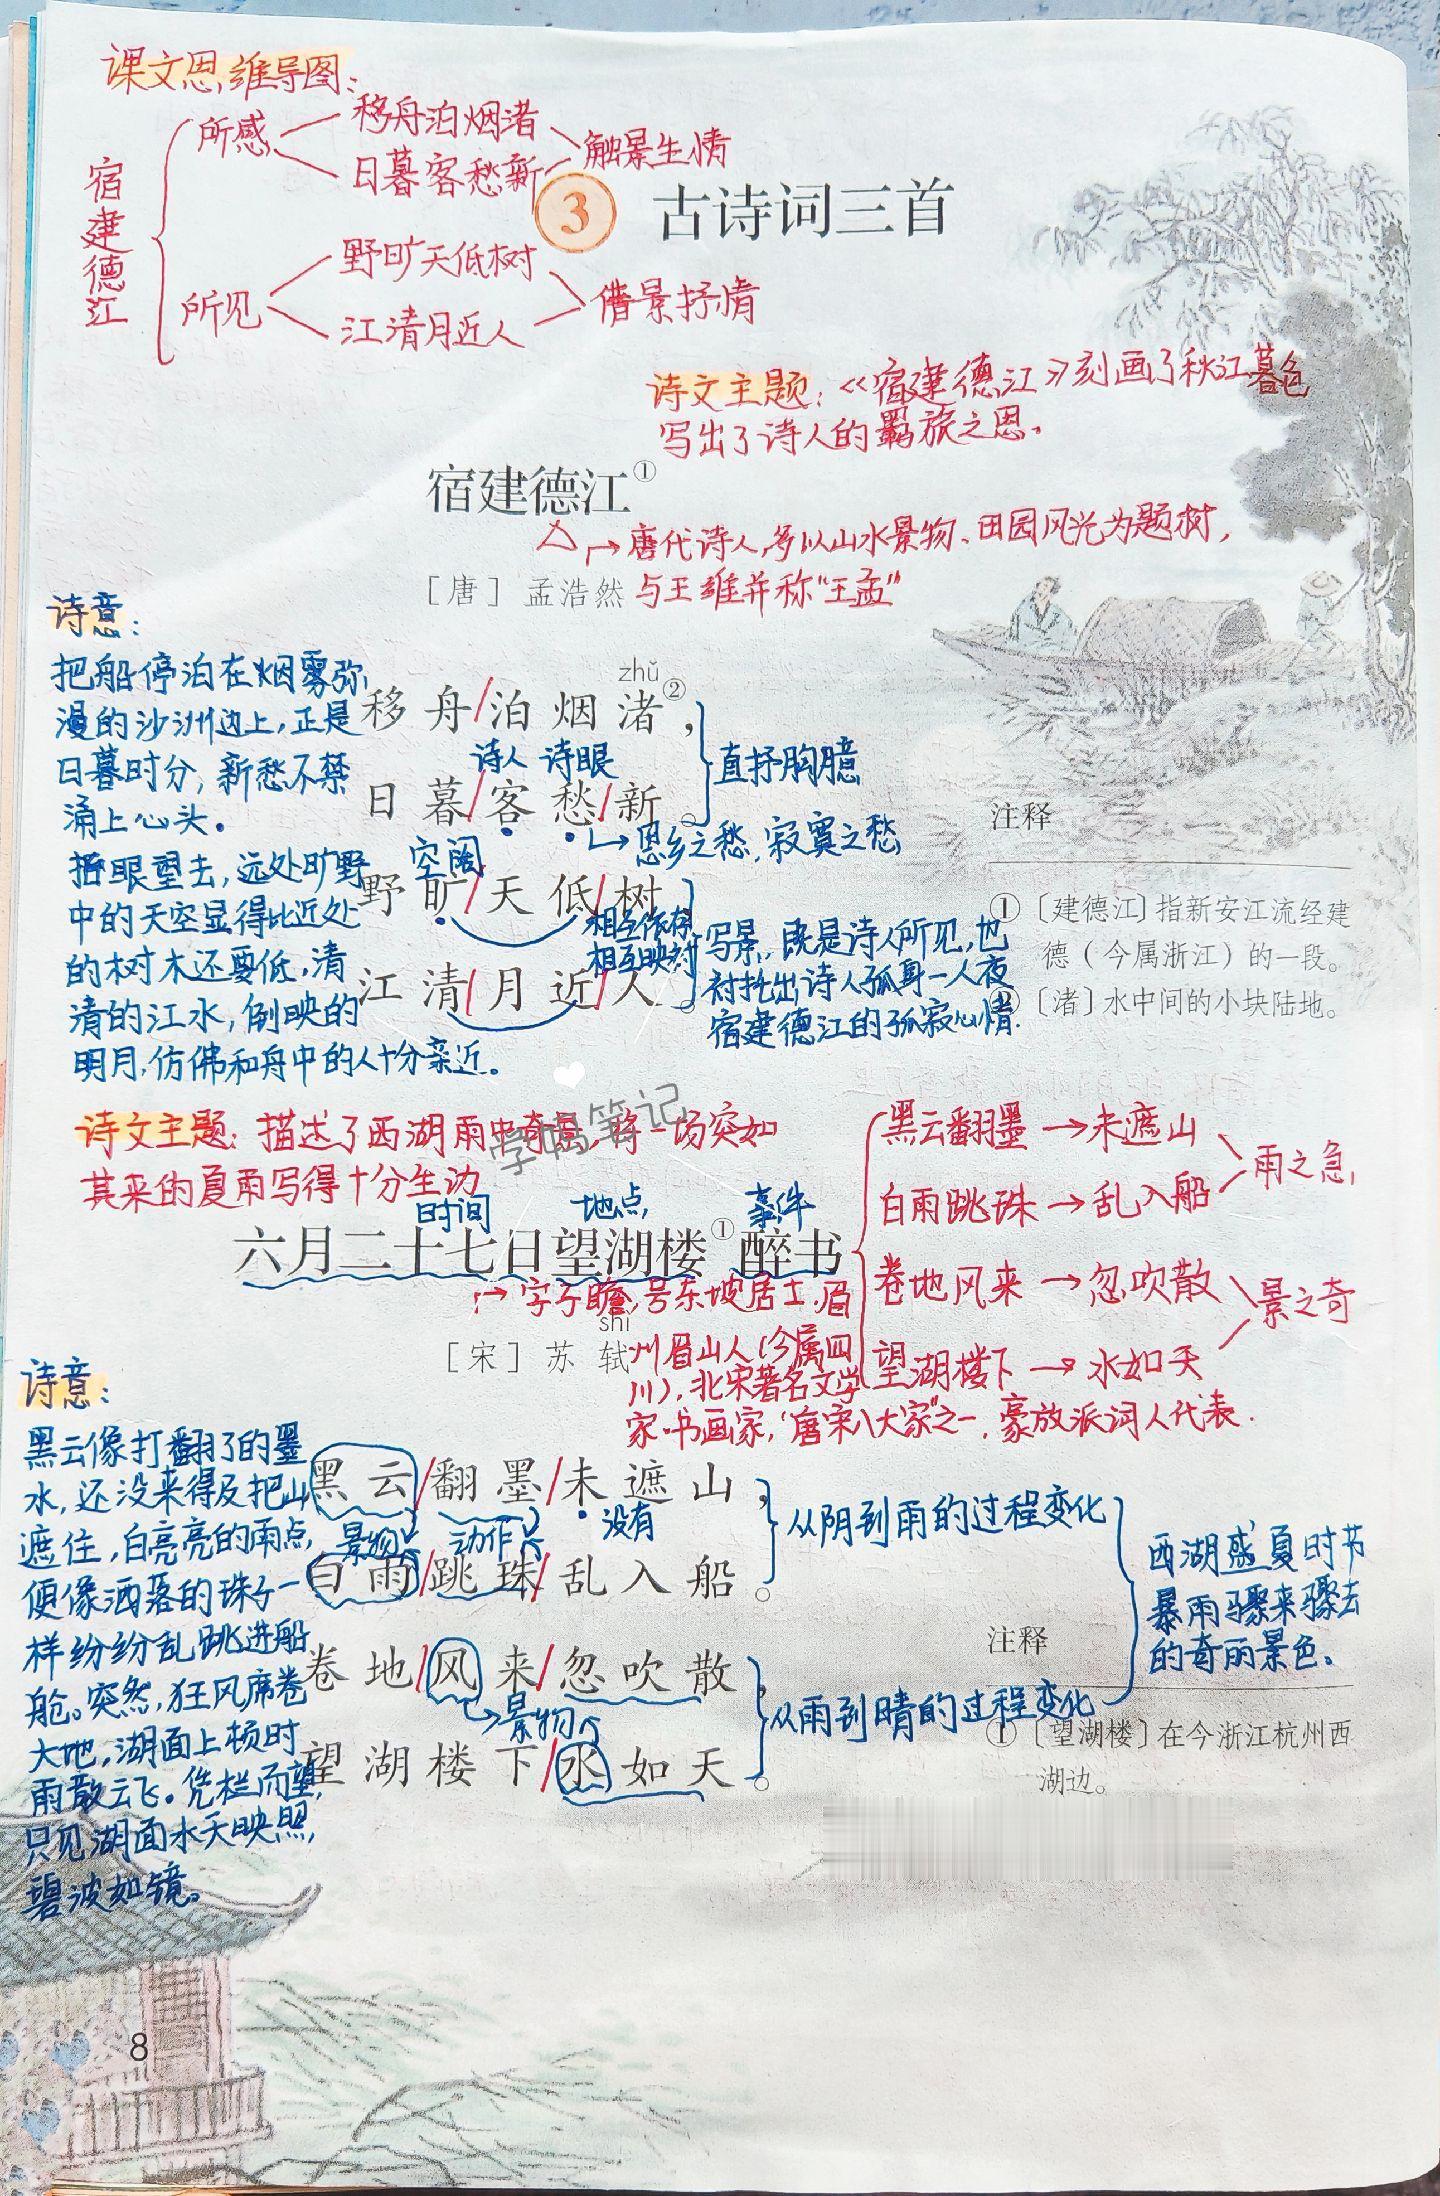 课文思维导图：
宿建德江
所感
移舟泊烟渚
日暮客愁新
触景生情
所见
野旷天低树
江清月近人
借景抒情
3 古诗词三首
诗文主题：《宿建德江》刻画了秋江暮色
写出了诗人的羁旅之思。
宿建德江①
唐代诗人，多以山水景物、田园风光为题树，
［唐］孟浩然
与王维并称“王孟”
诗意：
把船停泊在烟雾弥
漫的沙洲边上，正是
日暮时分，新愁不禁
涌上心头。
眼望去，远处旷野
中的天空显得比近处
的树木还要低，清
清的江水，倒映的
明月，仿佛和舟中的人十分亲近。
zhǔ
移舟/泊烟渚②，
诗人 诗眼
日暮/客愁/新。
直抒胸臆
思乡之愁，寂寞之愁
空阔
野旷/天低/树，
相互依存
相互映衬
江清/月近/人。
写景，既是诗人所见，也
衬托出诗人孤身一人夜
宿建德江的孤寂心情.
注释
①〔建德江〕指新安江流经建
德（今属浙江）的一段。
②〔渚〕水中间的小块陆地。
学霸笔记
诗文主题：描述了西湖雨中奇景，将一场突如
其来的夏雨写得十分生动
时间 地点 事件
六月二十七日望湖楼①醉书
黑云翻墨→未遮山
白雨跳珠→乱入船
雨之急，
卷地风来→忽吹散
望湖楼下→水如天
景之奇
字子瞻，号东坡居士，眉
shì
［宋］苏轼
州眉山人（今属四
川），北宋著名文学
家·书画家，“唐宋八大家”之一，豪放派词人代表．
诗意：
黑云像打翻了的墨
水，还没来得及把山
遮住，白亮亮的雨点，
便像洒落的珠子一
样纷纷乱跳进船
舱。突然，狂风席卷
大地，湖面上顿时
雨散云飞。凭栏而望，
只见湖面水天映照，
碧波如镜。
黑云/翻墨/未遮山，
景物 动作 没有
白雨/跳珠/乱入船。
从阴到雨的过程变化
卷地/风来/忽吹散，
景物
望湖楼下/水如天。
从雨到晴的过程变化
西湖盛夏时节
暴雨骤来骤去
的奇丽景色。
注释
①〔望湖楼〕在今浙江杭州西
湖边。
8